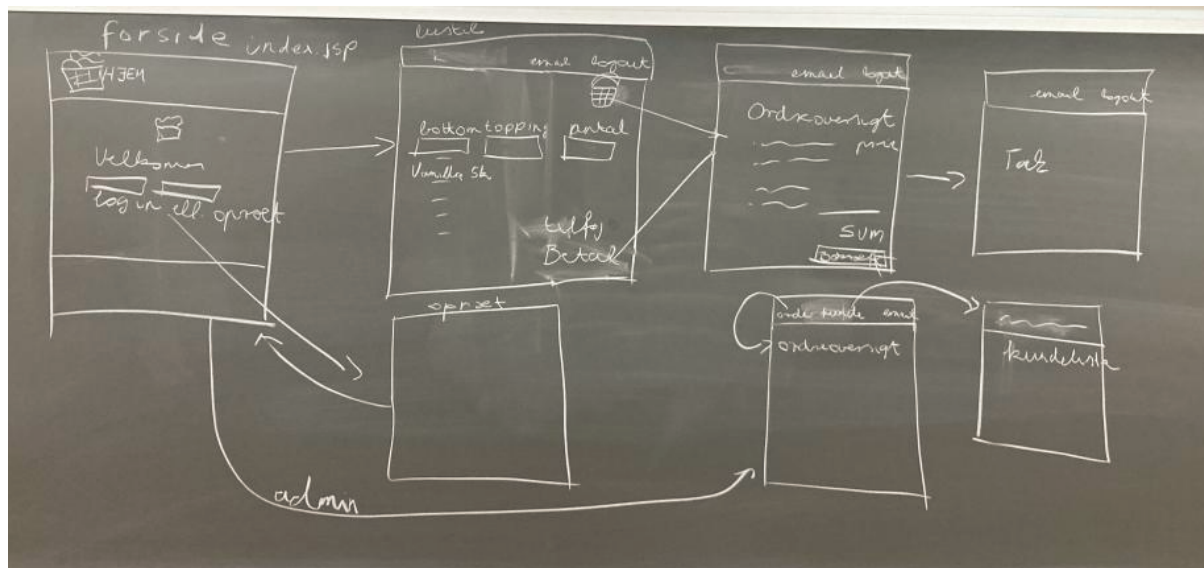 forside index.jsp
HJEM
Velkommen
log in ell. opret
bestil
email logout
bottom topping antal
Vanilla 5k
tilføj
Betal
email logout
Ordreoversigt
pris
SUM
email logout
Tak
opret
ordre kunde email
ordreoversigt
kundeliste
admin